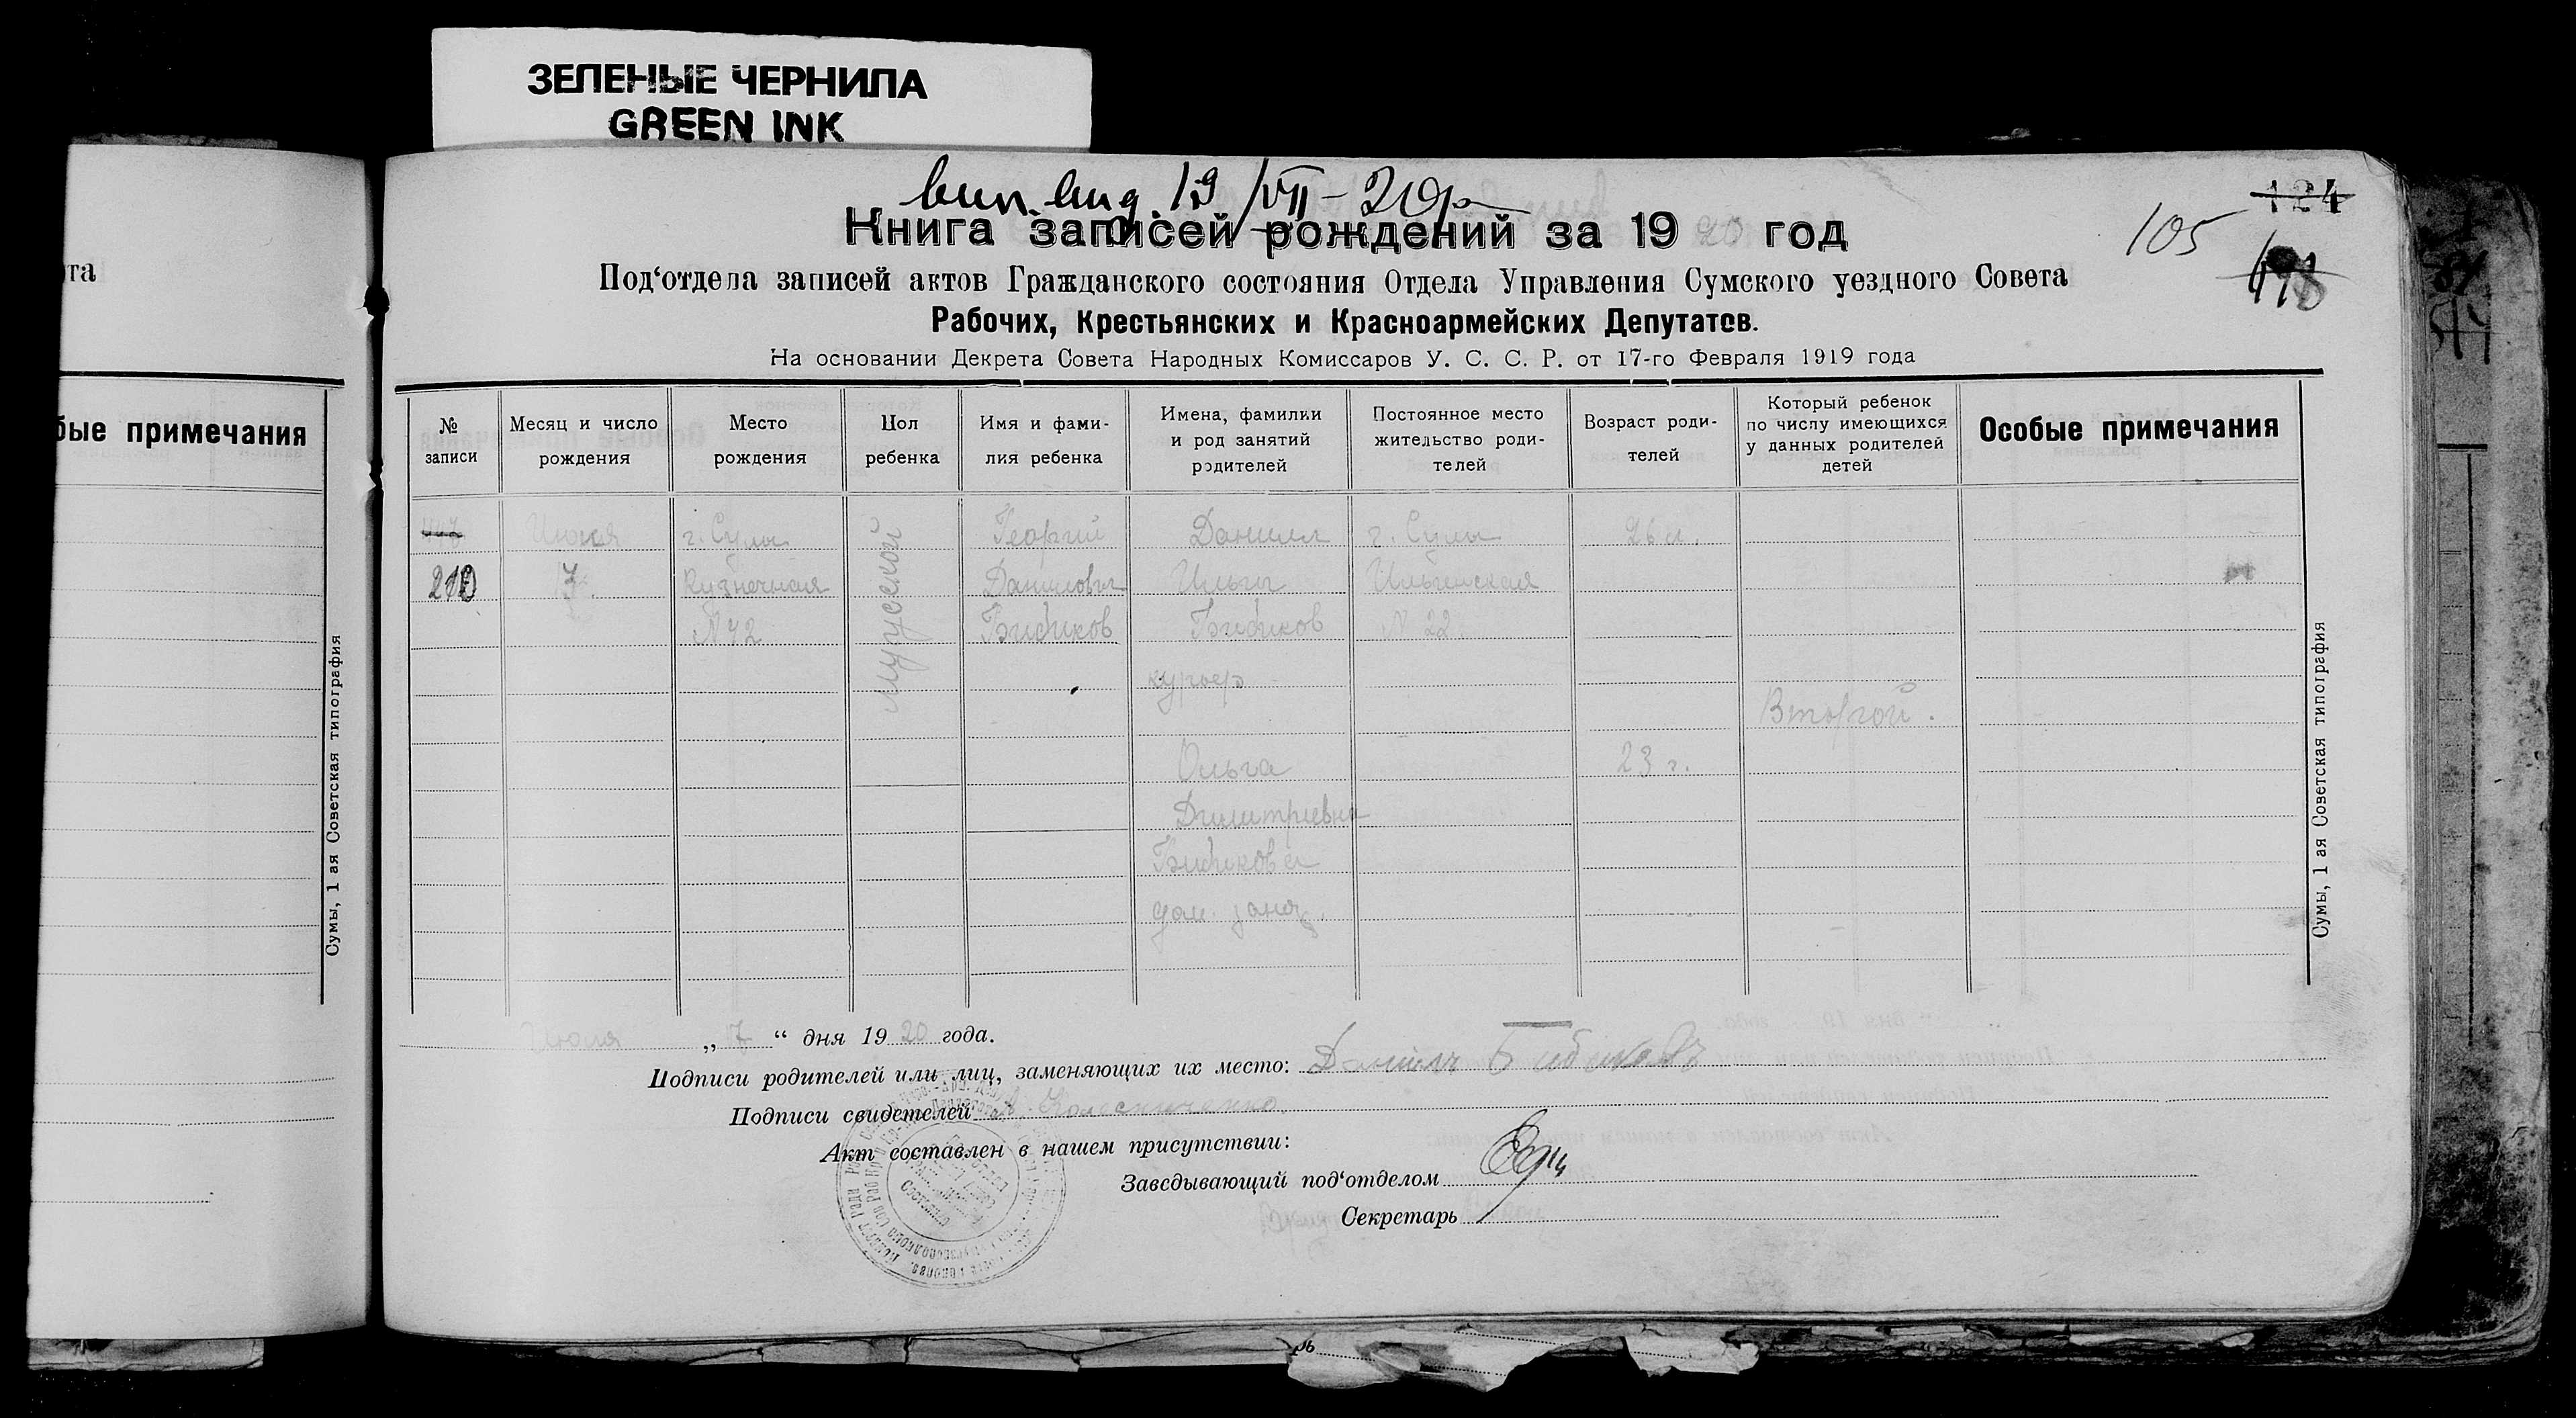 ЗЕЛЕНЫЕ ЧЕРНИЛА
GREEN INK
вып. 19/VII-20
Книга записей рождений за 19 20 год
124
105
Под‘отдела записей актов Гражданского состояния Отдела Управления Сумского уездного Совета
Рабочих, Крестьянских и Красноармейских Депутатов.
На основании Декрета Совета Народных Комиссаров У. С. С. Р. от 17-го Февраля 1919 года
та
бые примечания
№ записи
Месяц и число рождения
Место рождения
Пол ребенка
Имя и фами-
лия ребенка
Имена, фамилии
и род занятий
родителей
Постоянное место
жительство роди-
телей
Возраст роди-
телей
Который ребенок
по числу имеющихся
у данных родителей
детей
Особые примечания
210
г. Сумы
Кузнечная
№ 42
мужской
Георгий
Данилович
Бибиков
Данил
Ильич
Бибиков
курьер
Ольга
Димитриевна
Бибикова
дом. занят.
г. Сумы
Ильинская
№ 22
26 л.
23 г.
Второй.
Сумы, 1 ая Советская типография
Сумы, 1 ая Советская типография
Июля „ 7 “ дня 19 20 года.
Подписи родителей или лиц, заменяющих их место: Данилъ Бибиковъ
Подписи свидетелей Колесниченко
Акт составлен в нашем присутствии:
Заведывающий под‘отделом
Секретарь